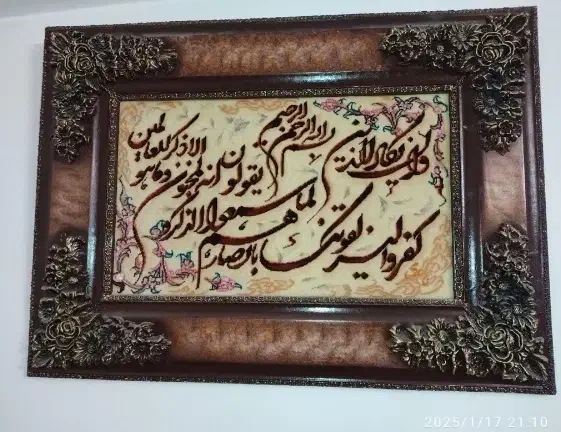 بسم الله الرحمن الرحیم
وان یکاد الذین
کفروا لیزلقونک
بابصارهم
لما سمعوا الذکر و
یقولون انه لمجنون وما هو
الا ذکر للعالمین
2025/1/17 21:10